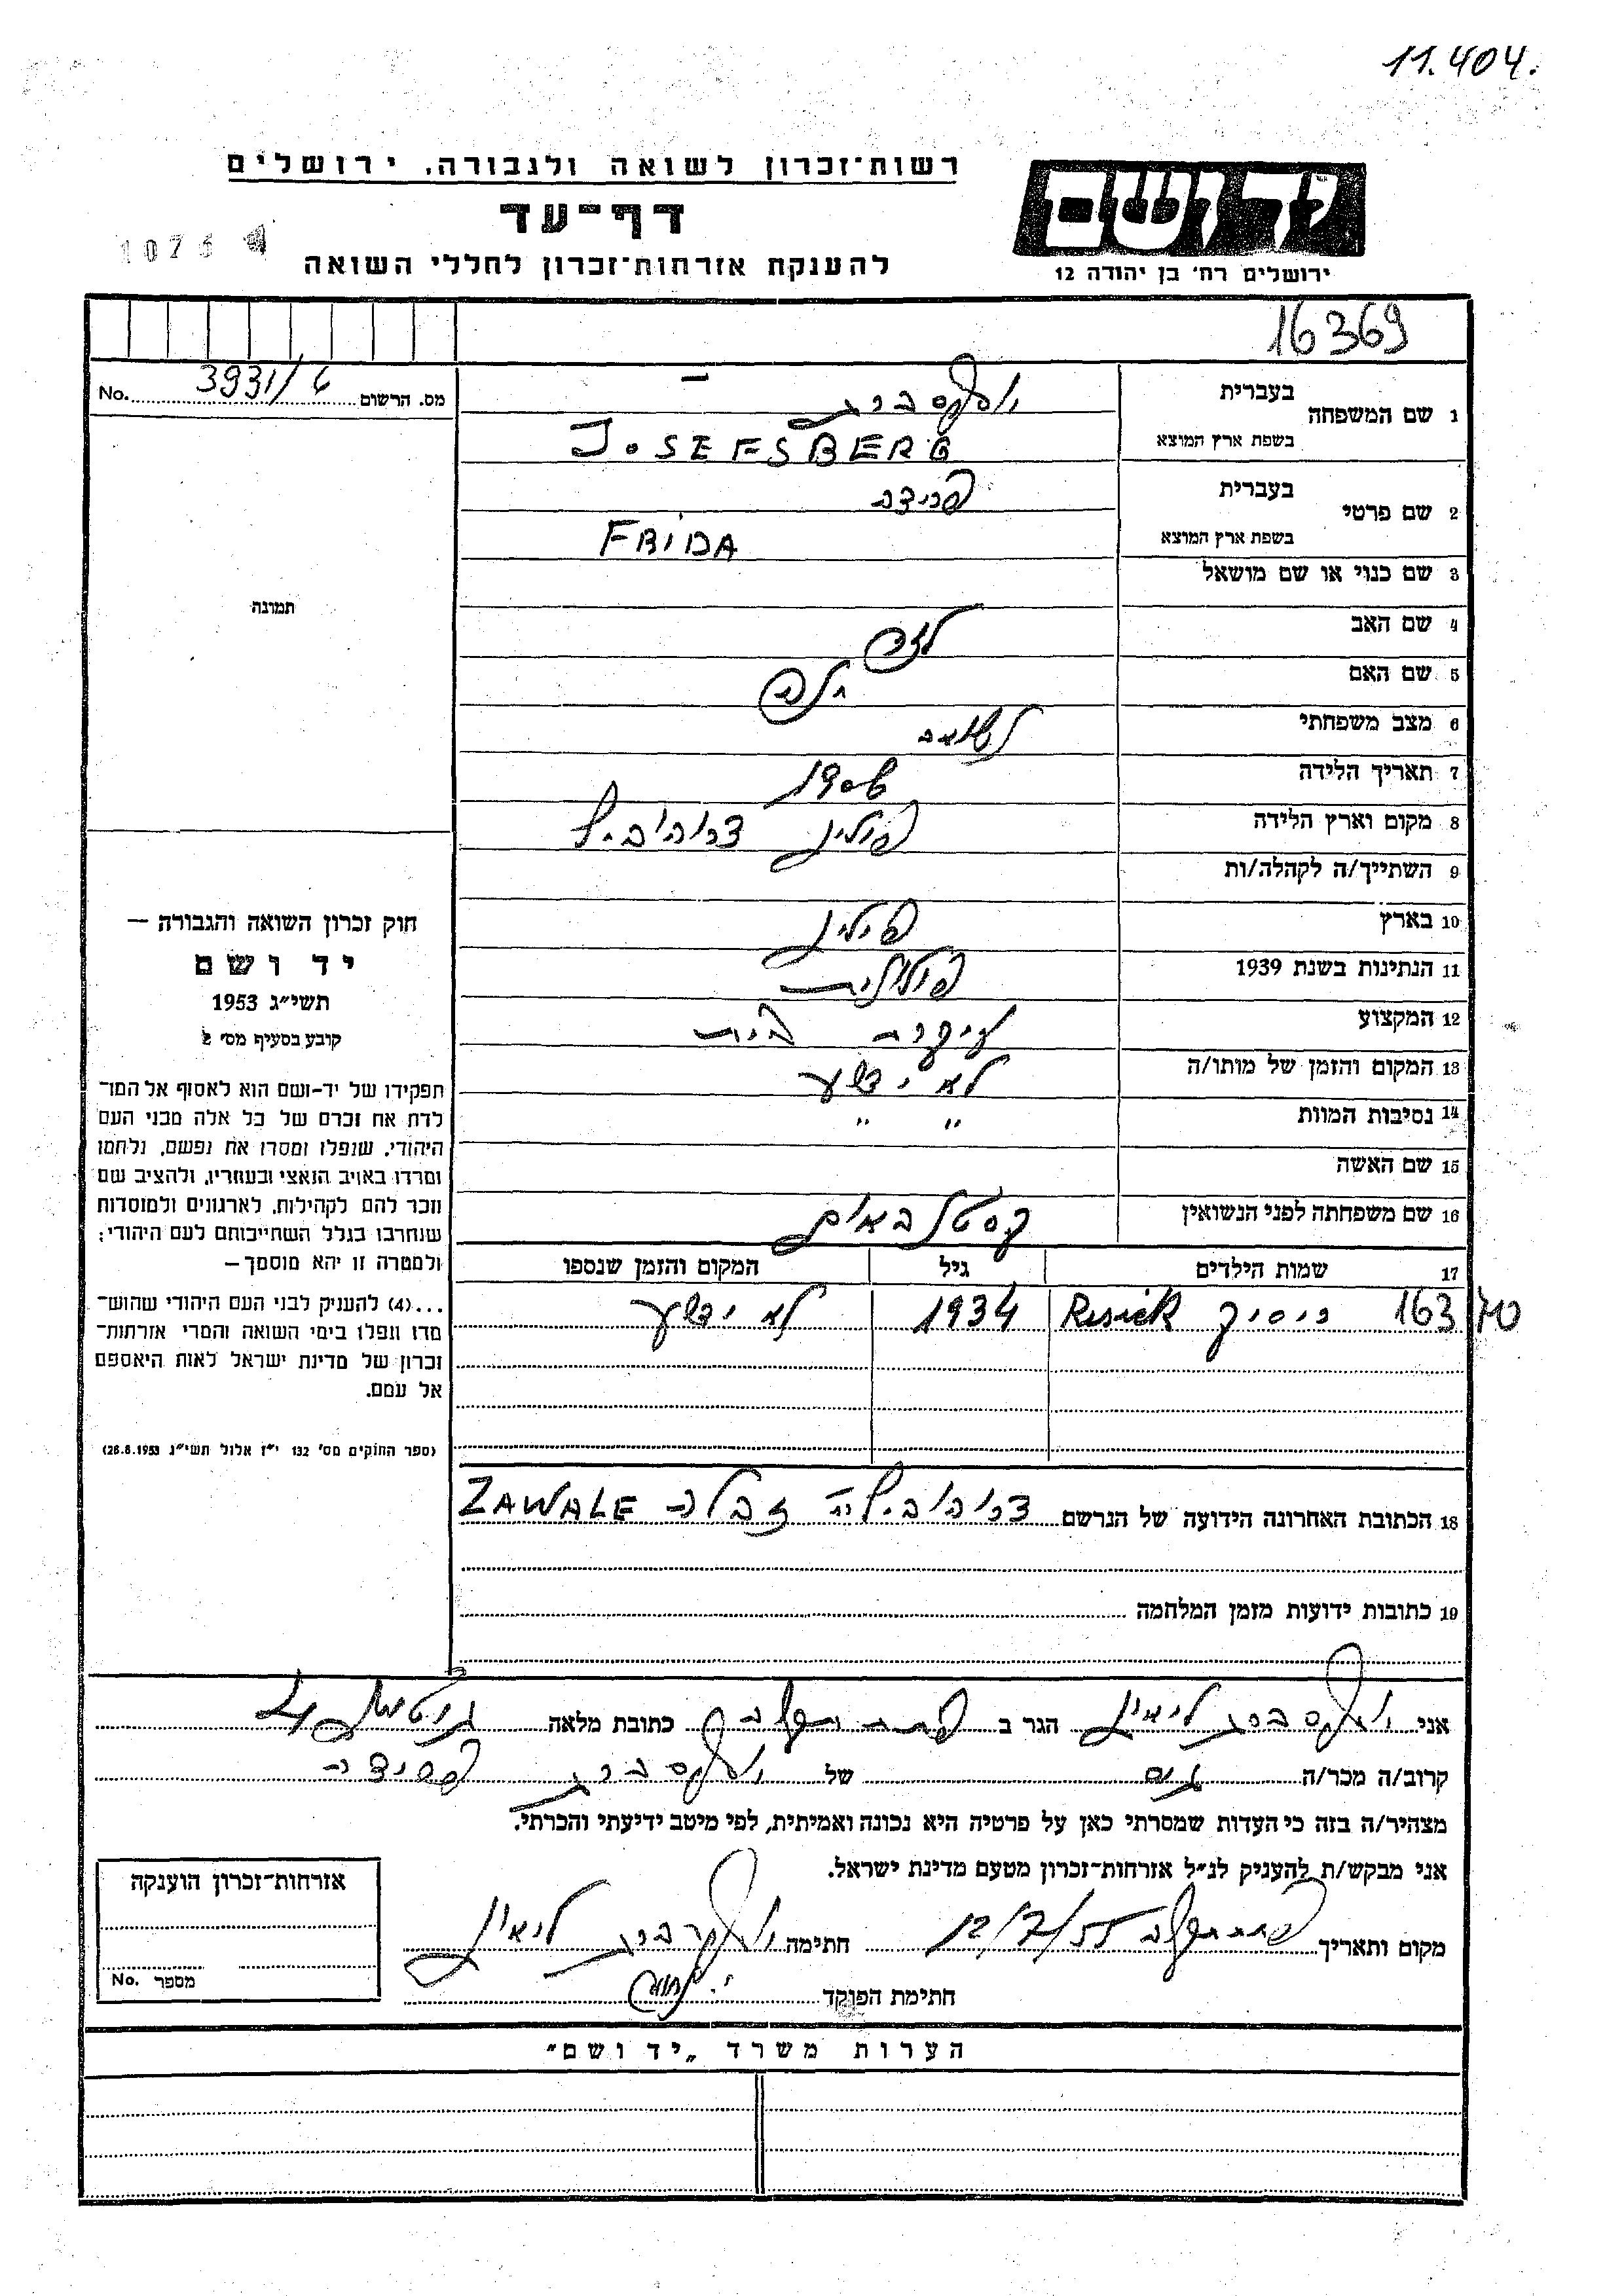 11.404.
רשות־זכרון לשואה ולגבורה, ירושלים
יד ושם
דף־עד
1075
להענקת אזרחות־זכרון לחללי השואה
ירושלים רח' בן יהודה 12
16369
מס. הרשום 3931/6 No.
1 שם המשפחה בעברית יוספסברג
בשפת ארץ המוצא JOSEFSBERG
2 שם פרטי בעברית פרידה
בשפת ארץ המוצא FRIDA
3 שם כנוי או שם מושאל
תמונה
4 שם האב
5 שם האם
6 מצב משפחתי נשואה
7 תאריך הלידה
8 מקום וארץ הלידה פולין דרוהוביץ
9 השתייך/ה לקהלה/ות
10 בארץ פולין
11 הנתינות בשנת 1939 פולנית
12 המקצוע עקרת בית
13 המקום והזמן של מותו/ה לא ידוע
14 נסיבות המוות " "
15 שם האשה
16 שם משפחתה לפני הנשואין קסטנבאום
חוק זכרון השואה והגבורה —
יד ושם
תשי"ג 1953
קובע בסעיף מס' 2
תפקידו של יד-ושם הוא לאסוף אל המו־
לדת את זכרם של כל אלה מבני העם
היהודי, שנפלו ומסרו את נפשם, נלחמו
ומרדו באויב הנאצי ובעוזריו, ולהציב שם
וזכר להם לקהילות, לארגונים ולמוסדות
שנחרבו בגלל השתייכותם לעם היהודי;
ולמטרה זו יהא מוסמך —
...(4) להעניק לבני העם היהודי שהוש־
מדו ונפלו בימי השואה והמרי אזרחות־
זכרון של מדינת ישראל לאות היאספם
אל עמם.
(ספר החוקים מס' 132 י"ז אלול תשי"ג 28.8.1953)
17 שמות הילדים גיל המקום והזמן שנספו
16370 ריסיק Resick 1934 לא ידוע
18 הכתובת האחרונה הידועה של הנרשם דרוהוביץ זבלה ZAWALE
19 כתובות ידועות מזמן המלחמה
אני יוספסברג ליאון הגר ב פתח תקוה כתובת מלאה
קרוב/ה מכר/ה גיס של יוספסברג פרידה
מצהיר/ה בזה כי העדות שמסרתי כאן על פרטיה היא נכונה ואמיתית, לפי מיטב ידיעתי והכרתי.
אני מבקש/ת להעניק לנ"ל אזרחות־זכרון מטעם מדינת ישראל.
מקום ותאריך פתח תקוה 12/7/55 חתימה יוספסברג ליאון
חתימת הפוקד
אזרחות־זכרון הוענקה
מספר No.
הערות משרד „יד ושם"